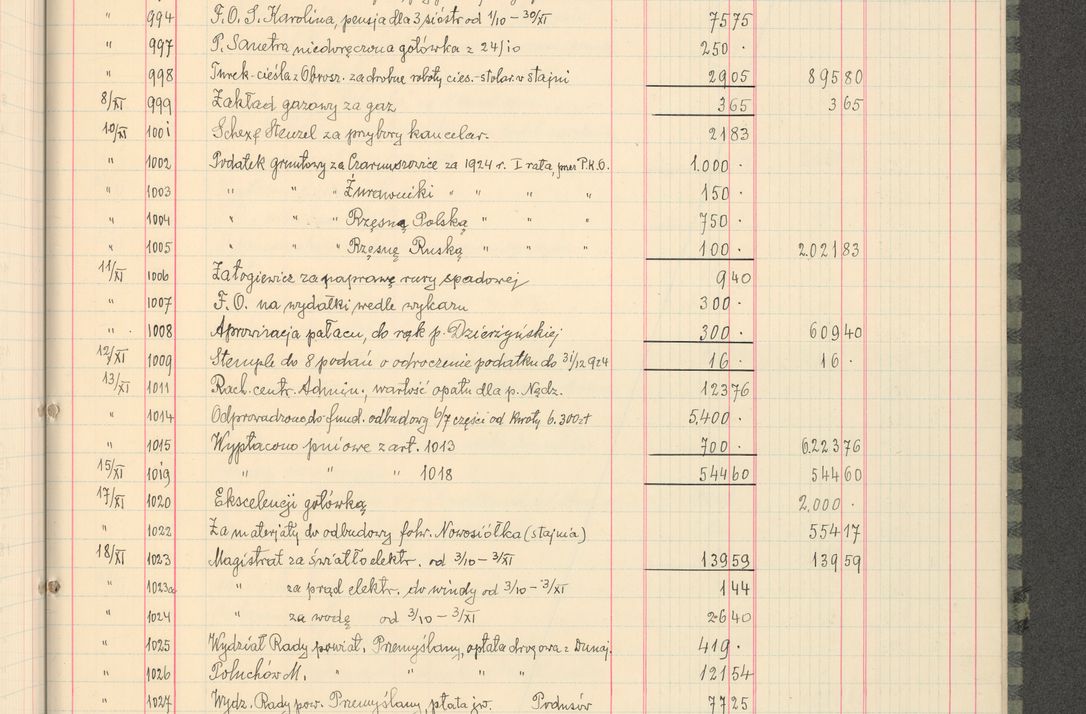 " 994 F. O. S. Karolina, pensja dla 3 sióstr od 1/10 – 30/XI 75 75
" 997 P. Sanetra niedoręczona gotówka z 24/10 250 ·
" 998 Turek - cieśla z Obrosz. za drobne roboty cies.-stolar. w stajni 29 05 895 80
8/XI 999 Zakład gazowy za gaz 3 65 3 65
10/XI 1001 Stenzel za przybory kancelar. 21 83
" 1002 Podatek gruntowy za Czarnuszowice za 1924 r. I rata, przez P.K.O. 1.000 ·
" 1003 " " " Żurawniki " " " " 150 ·
" 1004 " " " Rzęsną Polską " " " 750 ·
" 1005 " " " Rzęsnę Ruską " " " 100 · 2.021 83
11/XI 1006 Załogiewicz za naprawę rury spadowej 9 40
" 1007 F. O. na wydatki wedle wykazu 300 ·
" 1008 Aprowizacja pałacu, do rąk p. Dzierżyńskiej 300 · 609 40
12/XI 1009 Stemple do 8 podań o odroczenie podatku do 31/12 924 16 · 16 ·
13/XI 1011 Rach. centr. Admin., wartość opału dla p. Nądz. 123 76
" 1014 Odprowadzono do fund. odbudowy 6/7 części od kwoty 6.300 zł 5.400 ·
" 1015 Wypłacono pniowe z art. 1013 700 · 6.223 76
15/XI 1019 " " " 1018 544 60 544 60
17/XI 1020 Ekscelencji gotówką 2,000 ·
" 1022 Za materjały do odbudowy folw. Nowosiółka (stajnia) 554 17
18/XI 1023 Magistrat za światło elektr. od 3/10 – 3/XI 139 59 139 59
" 1023a " za prąd elektr. do windy od 3/10 – 3/XI 1 44
" 1024 " za wodę od 3/10 – 3/XI 26 40
" 1025 Wydział Rady powiat. Przemyślany, opłata drogowa z Dunaj. 419 ·
" 1026 Połuchów M. " " " " 121 54
" 1027 Wydz. Rady pow. Przemyślany, płata jw. Podusów 77 25